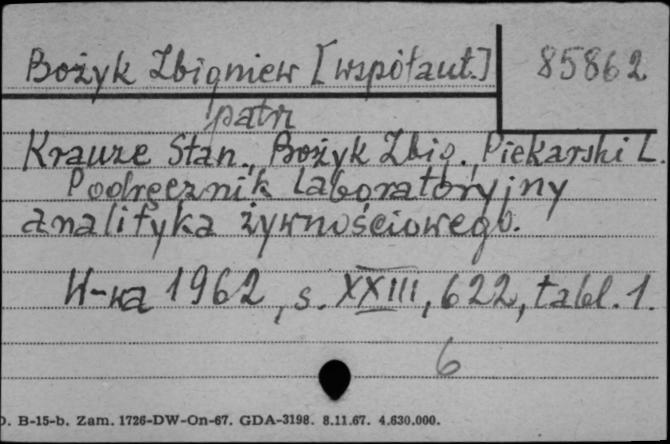 Bożyk Zbigniew [współaut.] 85862
patrz
Krauze Stan., Bożyk Zbig., Piekarski L.
Podręcznik laboratoryjny
analityka żywnościowego.
W-wa 1962, s. XXIII, 622, tabl. 1.
6
D. B-15-b. Zam. 1726-DW-On-67. GDA-3198. 8.11.67. 4.630.000.